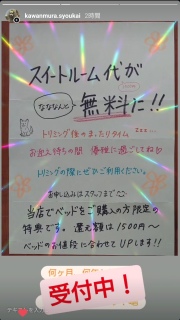 kawanmura_syoukai 2時間
スイートルーム代が
なななんと 無料に!!
トリミング後のまったりタイム zzz...
お迎え待ちの間 優雅に過ごしてね
トリミングの際にぜひご利用ください。
お申し込みはスタッフまで
当店でベッドをご購入の方限定の
特典です。還元額は1500円〜
ベッドのお値段に合わせてUPします!!
受付中!